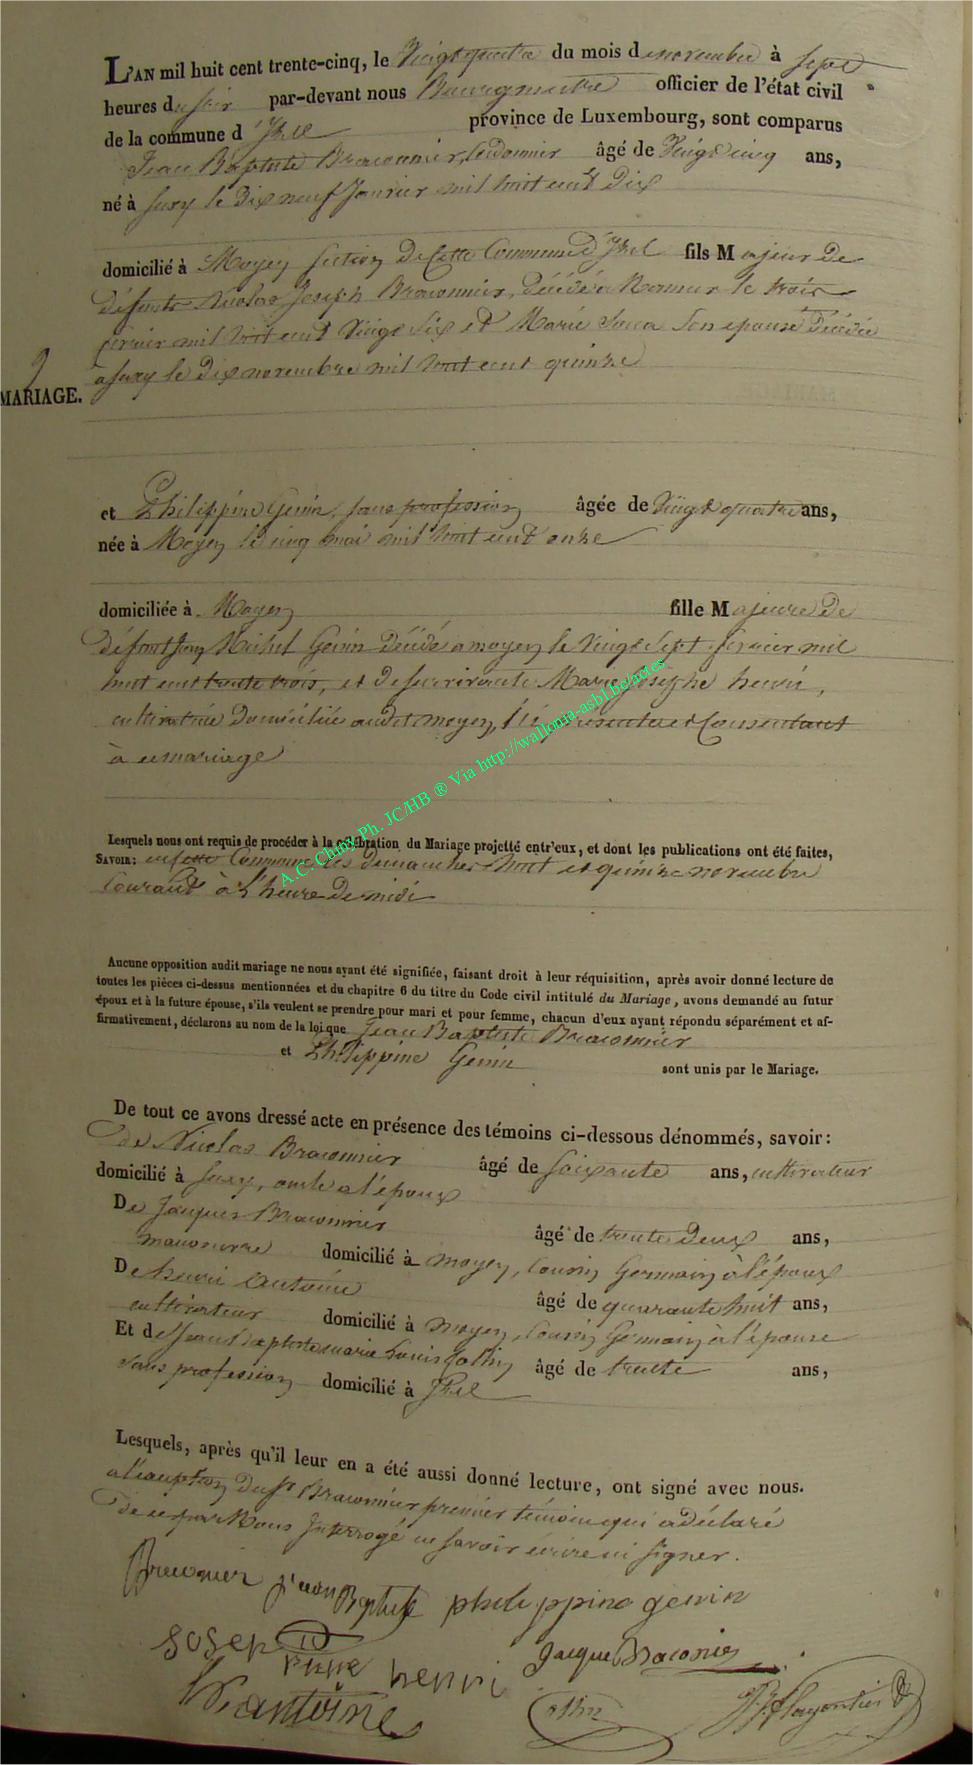 L'AN mil huit cent trente-cinq, le Vingt quatre du mois de novembre à sept
heures du soir par-devant nous Bourgmestre officier de l'état civil
de la commune d'Izel province de Luxembourg, sont comparus
Jean Baptiste Braconnier, cordonnier âgé de Vingt cinq ans,
né à Suxy le Dix neuf Janvier mil huit cent Dix
domicilié à Moyen section de cette Commune d'Izel fils Majeur de
défunts Nicolas Joseph Braconnier, décédé à Namur le trois
février mil huit cent Vingt Six et Marie son épouse décédée
à Suxy le Dix novembre mil huit cent quinze
9
MARIAGE.
et Philippine Genin, sans profession âgée de Vingt quatre ans,
née à Moyen le cinq mai mil huit cent onze
domiciliée à Moyen fille Majeure de
défunt Jean Michel Genin décédé à moyen le Vingt Sept février mil
huit cent trente trois, et de survivante Marie Josephe henri,
cultivatrice domiciliée audit moyen, ici présente et Consentant
à ce mariage
Lesquels nous ont requis de procéder à la célébration du Mariage projetté entr'eux, et dont les publications ont été faites,
SAVOIR: en cette Commune les dimanches huit et quinze novembre
Courant à l'heure de midi
A.C. Chiny Ph. JC/HB ® Via http://wallonia-asbl.be/actes
Aucune opposition audit mariage ne nous ayant été signifiée, faisant droit à leur réquisition, après avoir donné lecture de
toutes les pièces ci-dessus mentionnées et du chapitre 6 du titre du Code civil intitulé du Mariage, avons demandé au futur
époux et à la future épouse, s'ils veulent se prendre pour mari et pour femme, chacun d'eux ayant répondu séparément et af-
firmativement, déclarons au nom de la loi que Jean Baptiste Braconnier
et Philippine Genin sont unis par le Mariage.
De tout ce avons dressé acte en présence des témoins ci-dessous dénommés, savoir:
de Nicolas Braconnier âgé de soixante ans, cultivateur
domicilié à Suxy, oncle à l'époux
De Jacques Braconnier âgé de trente Deux ans,
domicilié à moyen, Cousin Germain à l'époux
De henri Antoine âgé de quarante huit ans,
cultivateur domicilié à moyen, Cousin Germain à l'épouse
Et de Jean Baptiste marie Louis âgé de trente ans,
sans profession domicilié à Izel
Lesquels, après qu'il leur en a été aussi donné lecture, ont signé avec nous.
à l'exception du Sr Braconnier premier témoin qui a déclaré
de ce par Nous Interrogé ne savoir écrire ni signer.
Braconier jean Baptiste philippine genin
henri Jacque Braconier
h antoine